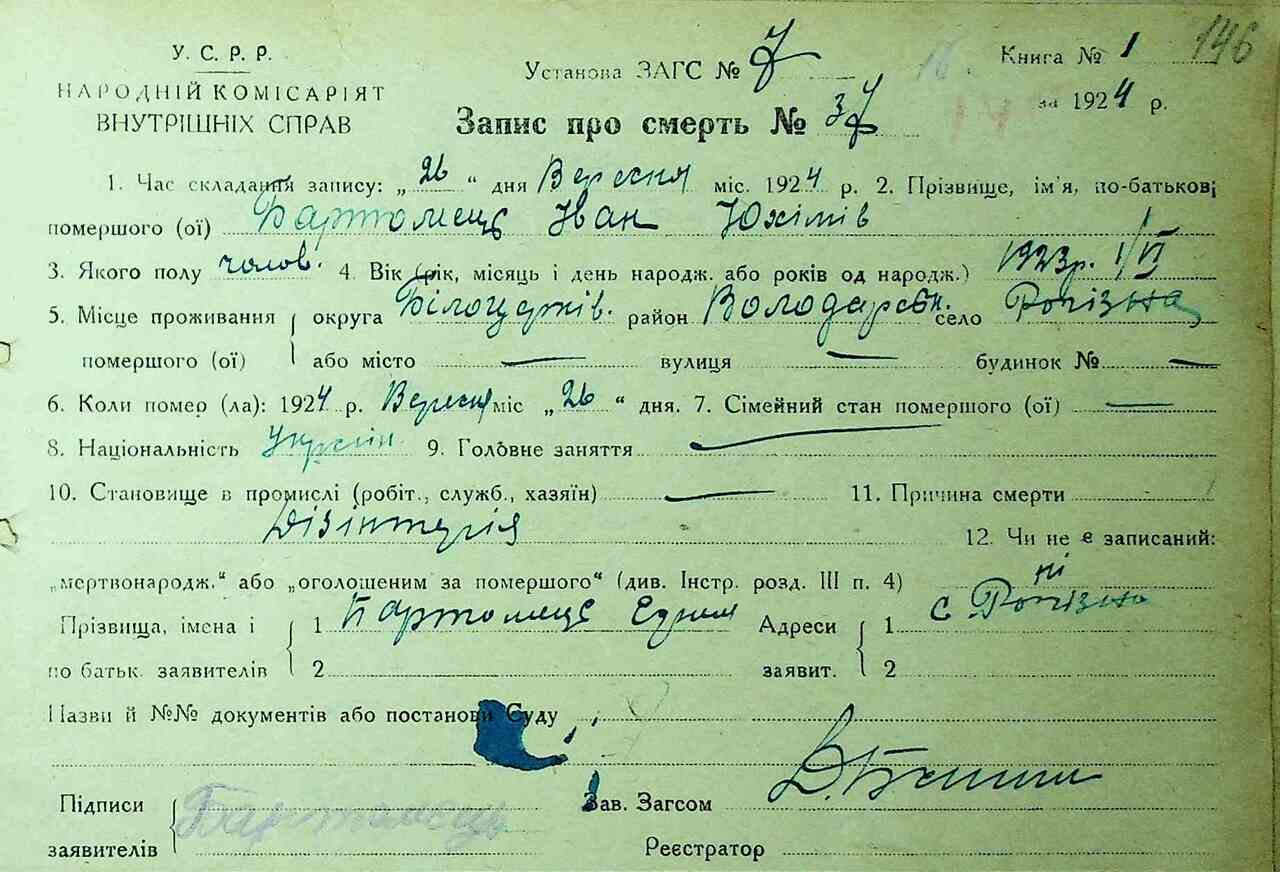 У. С. Р. Р.
НАРОДНІЙ КОМІСАРІЯТ
ВНУТРІШНІХ СПРАВ
Установа ЗАГС № 7
Книга № 1
146
за 1924 р.
Запис про смерть № 37
1. Час складання запису: „26“ дня Вересня міс. 1924 р. 2. Прізвище, ім'я, по-батькові
помершого (ої) Бартомець Іван Юхимів
3. Якого полу чолов. 4. Вік (рік, місяць і день народж. або років од народж.) 1923р. 1/VI
5. Місце проживання округа Білоцерків. район Володарськ. село Рогізна
помершого (ої) або місто — вулиця — будинок № —
6. Коли помер (ла): 1924 р. Вересня міс „26“ дня. 7. Сімейний стан помершого (ої) —
8. Національність Україн 9. Головне заняття —
10. Становище в промислі (робіт., служб., хазяїн) — 11. Причина смерти
Дізінтерія 12. Чи не є записаний:
„мертвонародж.“ або „оголошеним за помершого“ (див. Інстр. розд. III п. 4) ні
Прізвища, імена і 1 Бартомець Адреси 1 с Рогізна
по батьк. заявителів 2 заявит. 2
Назви й №№ документів або постанови Суду
Підписи Бартомець Зав. Загсом
заявителів Реєстратор